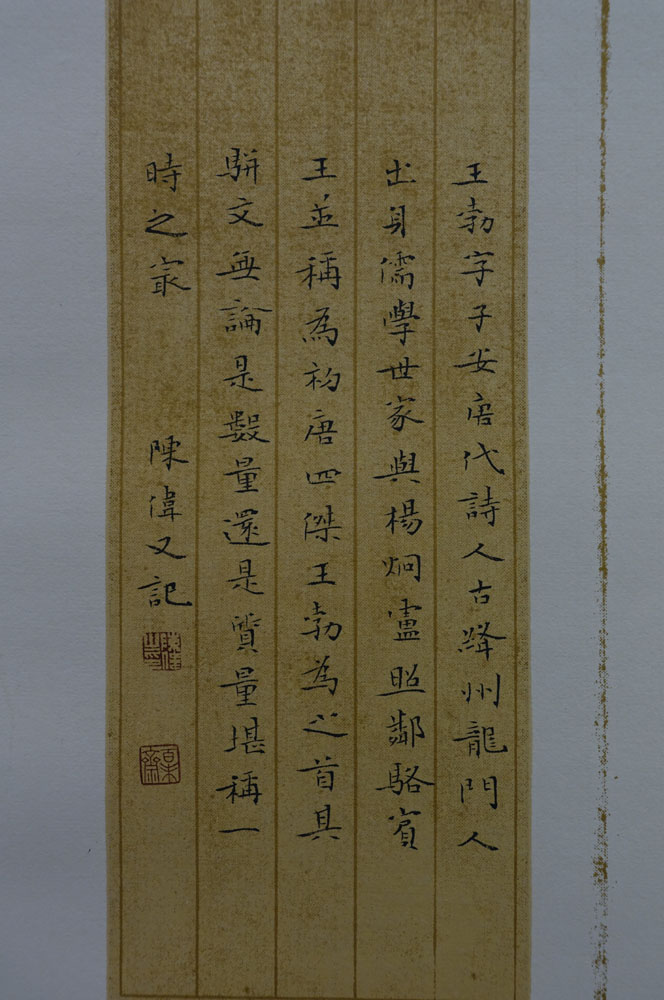 王勃字子安唐代詩人古絳州龍門人
出身儒學世家與楊炯盧照鄰駱賓
王並稱為初唐四傑王勃為之首其
駢文無論是數量還是質量堪稱一
時之最 陳偉又記